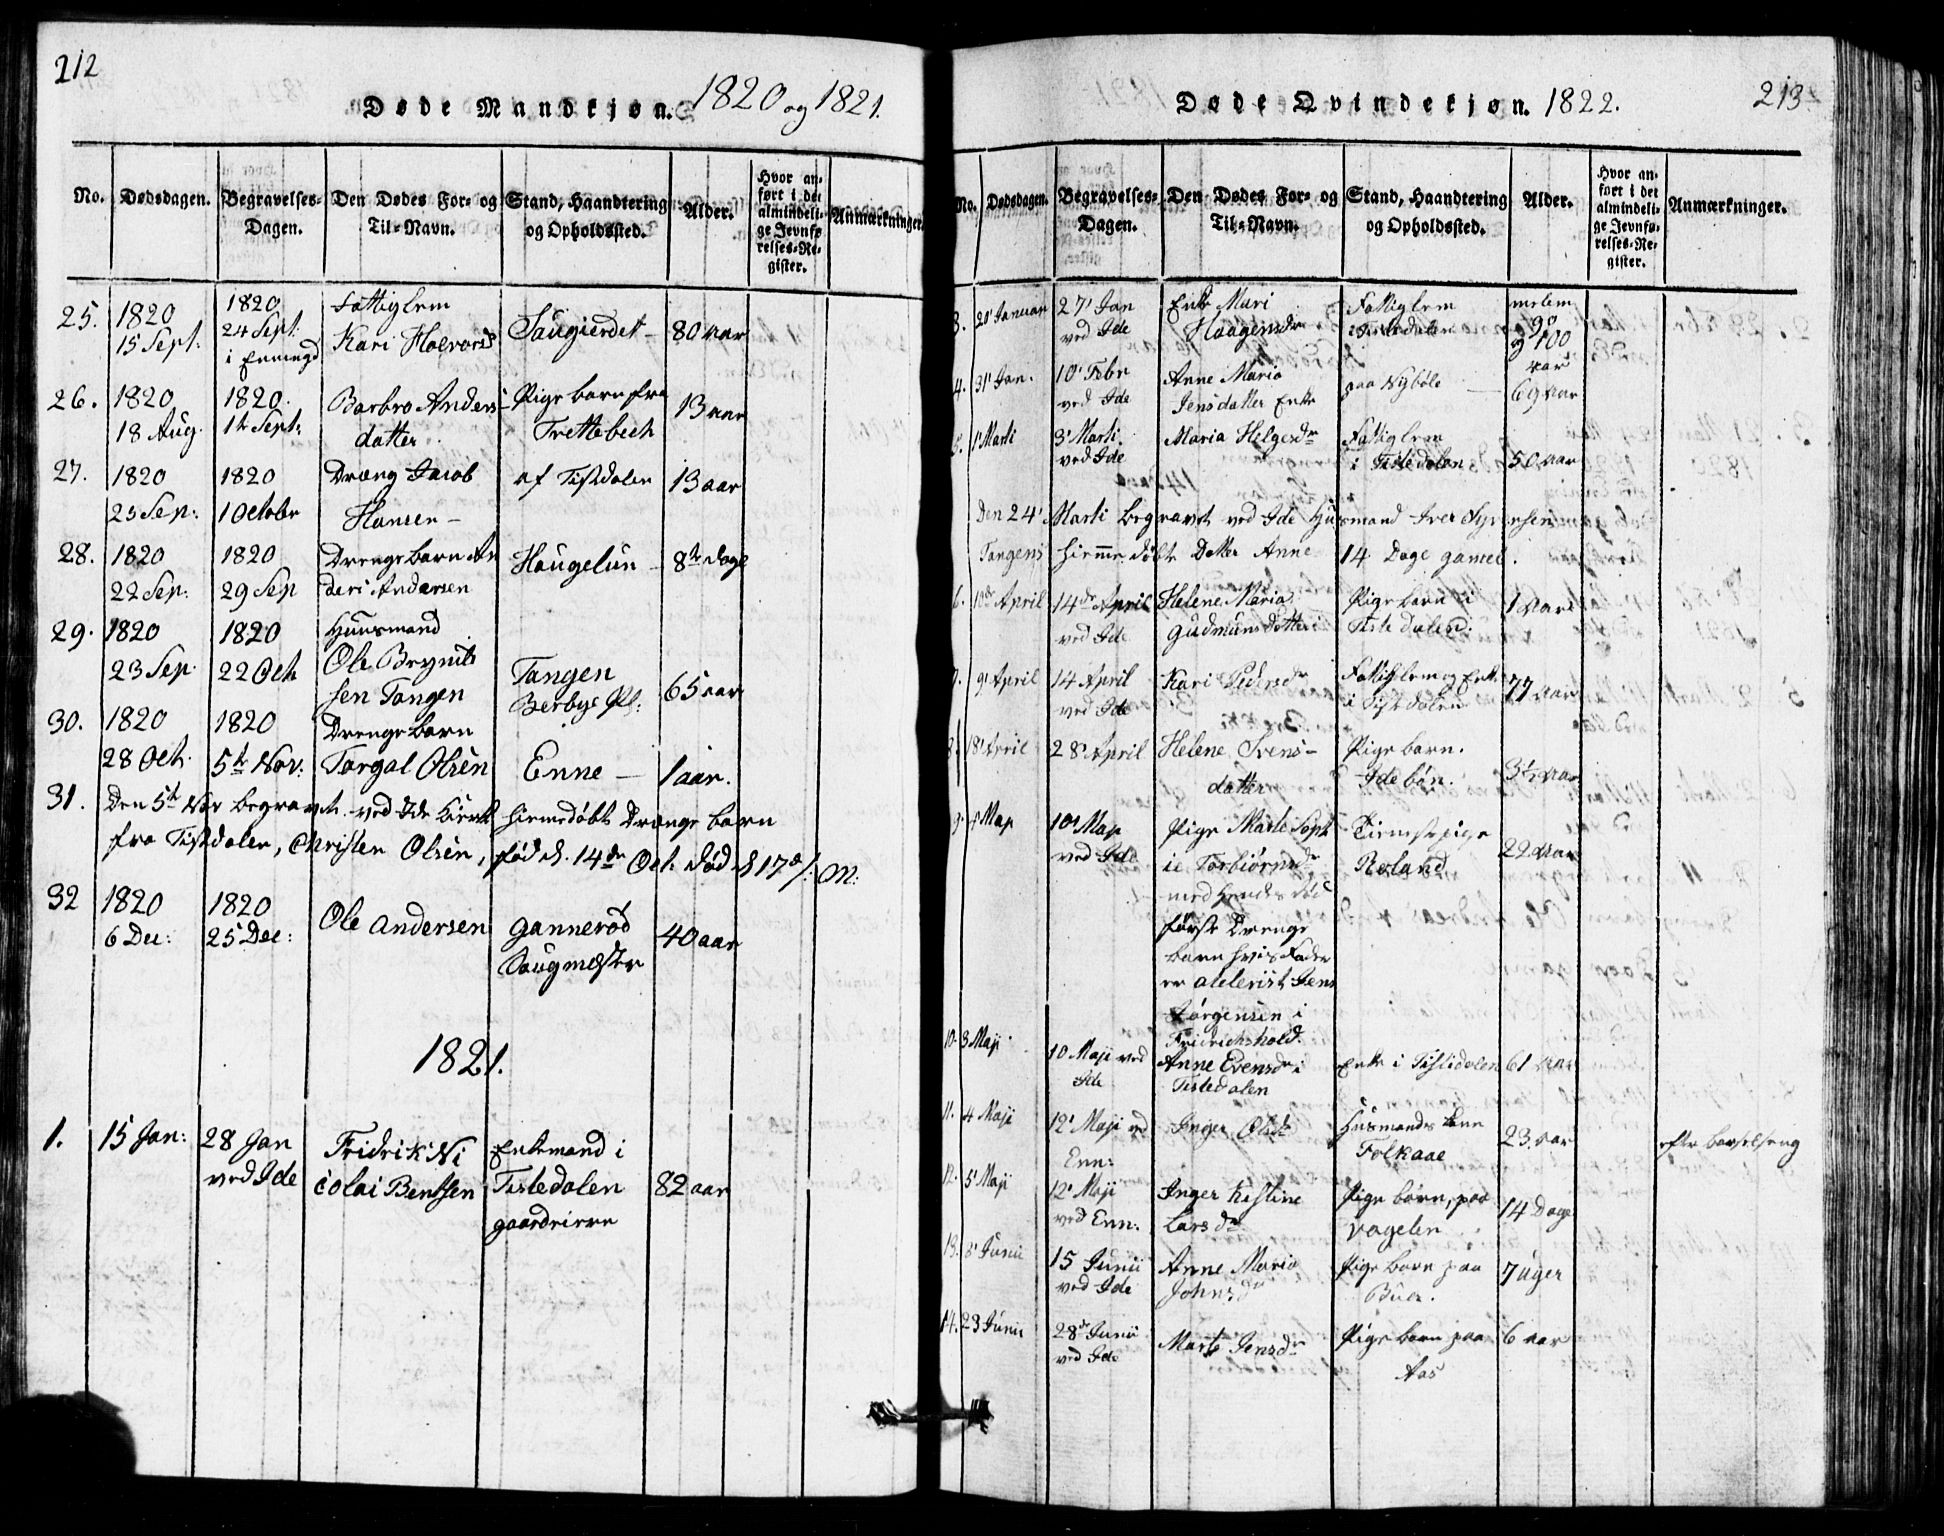 212
Døde Mandkjøn. 1820 og 1821.
No. Dødsdagen. Begravelses-Dagen. Den Dødes For- og Til-Navn. Stand, Haandtering og Opholdssted. Alder. Hvor anført i det almindelige Jevnførelses-Register. Anmærkninger.
25. 1820 15 Sept: 1820 24 Sept: i Enningd Fattiglem Kari Halvords Saugierdet 80 aar
26. 1820 18 Aug. 1820. 1te Sept: Barbro Anders datter Pige barn fra Trettebech 13 aar
27. 1820 25 Sep: 1820 1 Octobr Dræng Jacob Hansen af Tistdalen 13 aar
28. 1820 22 Sep: 1820 29 Sep Drengebarn An ders Andersen Haugelun 8te dage
29. 1820 23 Sep. 1820 22 Oct Huusmand Ole Brynils sen Tangen Tangen Berbye Pl: 65 aar
30. 1820 28 Oct. 1820 5te Nov: Drengebarn Torgal Olsen Enne 1 aar.
31. Den 5te Nov begravet ved Ide Kirke hiemedøbt Drenge barn
fra Tistdalen, Christen Olsen, fød d. 14de Oct død d 17de s: M:
32 1820 6 Dec: 1820 25 Dec: Ole Andersen Gannerød Saugmester 40 aar
1821.
1. 15 Jan: 28 Jan ved Ide Fridrik Ni colai Bentsen Enkemand i Tistedalen gaardeierne 82 aar
213
Døde Qvindekjøn. 1822.
No. Dødsdagen. Begravelses-Dagen. Den Dødes For- og Til-Navn. Stand, Haandtering og Opholdssted. Alder. Hvor anført i det almindelige Jevnførelses-Register. Anmærkninger.
3. 20 Januar 27 Jan ved Ide Enke Mari Haagensdr Fattiglem i Tistedalen melem 90 og 100 aar
4. 31 Jan. 10 Febr ved Ide Anne Maria Jensdatter Enke paa Nybøle 69 aar
5. 1 Marti 3 Marti ved Ide Maria Helgesdr Fattiglem i Tistedalen 50 aar
Den 24 Marti begravet ved Ide Husmand Iver Syvensen
Tangens hiemmedøbte Datter Anne 14 Dage gamel.
6. 10de April 14de April ved Ide Helene Maria Gudmunsdatter Pigebarn i Tistedalen. 1 aar
7. 9 April 14 April ved Ide Kari Fattiglem og Enke i Tistedalen 77 aar
8. 18 April 28 April Helene Svens- datter Pigebarn. Idebøn. 3½ aar
9. Maji 10 Maji ved Ide Pige Marte Soph ie Torbiørnsdr med hendes død første Drenge barn hvis Fader er Jens Jørgensen i Fridrichshald. Tienistepige Roland 22 aar
10. 3 Maji 10 Maji ved Ide Anne Evensdr i Tistedalen Enke i Tistedalen 61 aar
11. 4 Maji 12 Maji ved Enn: Inger Husmands Folkaae 23 aar efter barselseng
12. 5 Maji 12 Maji ved Enn: Inger Kistine Lars dr Pige barn, paa Vagelen 14 Dage
13. 8 Junii 15 Junii ved Ide Anne Maria Johnsdr Pige barn paa Buer. 7 uger
14. 23 Junii 28de Junii ved Ide Marte Jensdr Pige barn paa Aas 6 aar